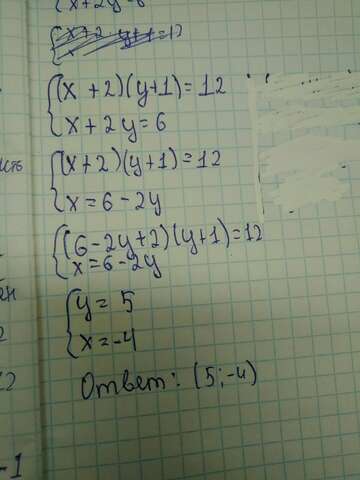 x+2y=6
(x+2)(y+1)=12
x+2y=6
(x+2)(y+1)=12
x=6-2y
(6-2y+2)(y+1)=12
x=6-2y
y=5
x=-4
Ответ: (5;-4)
-1